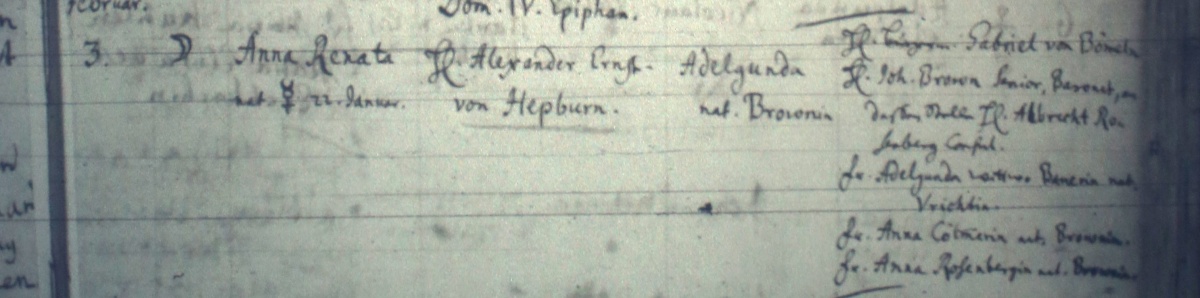 Februar.
Dom. IV. Epiphan.
3. ☽ Anna Renata
nat. ☿ 22. Januar.
H. Alexander Ernst.
von Hepburn.
Adelgunda
nat. Brownin
H. Gabriel von Bömeln
H. Joh. Brown Senior, Baronet, an
dessen stelle H. Albrecht Ro
senberg Consul.
fr. Adelgunda Banerin nat.
Vrichtin.
fr. Anna Cölmerin nat. Brownin.
fr. Anna Rosenbergin nat. Brownin.